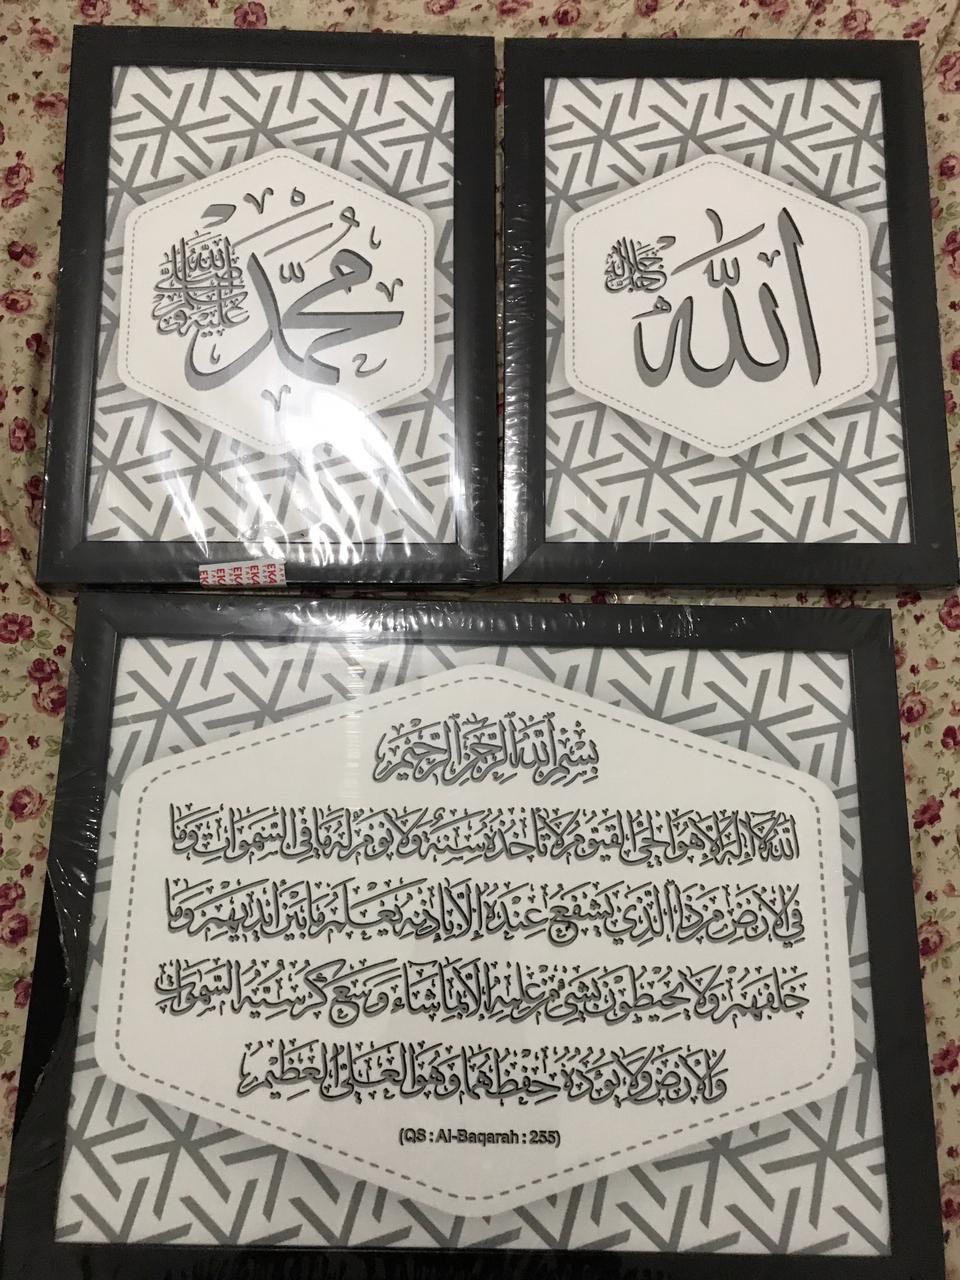 محمد
صلى الله عليه وسلم
الله
جل جلاله
EKA
EKA
EKA
بِسْمِ اللَّهِ الرَّحْمَنِ الرَّحِيمِ
اللَّهُ لَا إِلَهَ إِلَّا هُوَ الْحَيُّ الْقَيُّومُ لَا تَأْخُذُهُ سِنَةٌ وَلَا نَوْمٌ لَهُ مَا فِي السَّمَوَاتِ وَمَا
فِي الْأَرْضِ مَنْ ذَا الَّذِي يَشْفَعُ عِنْدَهُ إِلَّا بِإِذْنِهِ يَعْلَمُ مَا بَيْنَ أَيْدِيهِمْ وَمَا
خَلْفَهُمْ وَلَا يُحِيطُونَ بِشَيْءٍ مِنْ عِلْمِهِ إِلَّا بِمَا شَاءَ وَسِعَ كُرْسِيُّهُ السَّمَوَاتِ
وَالْأَرْضَ وَلَا يَئُودُهُ حِفْظُهُمَا وَهُوَ الْعَلِيُّ الْعَظِيمُ
(QS : Al-Baqarah : 255)